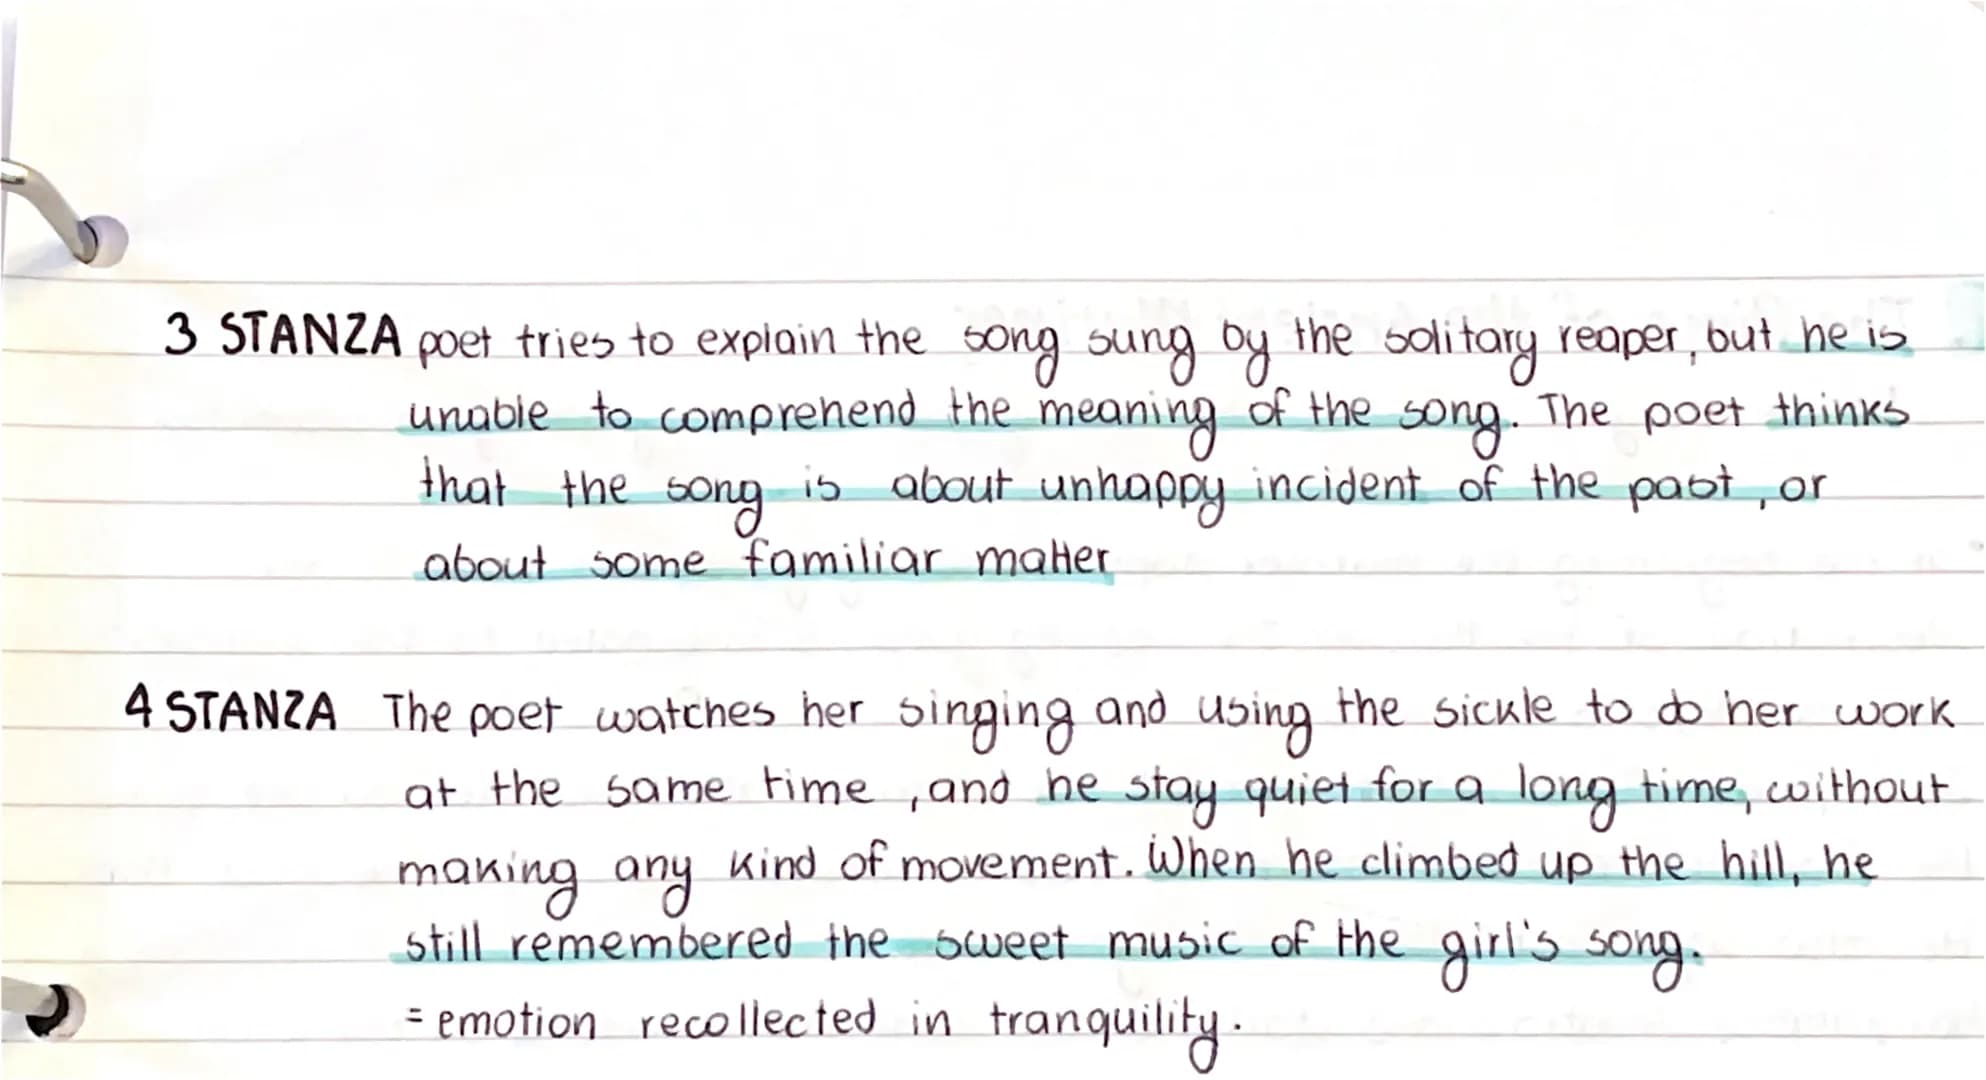 3 STANZA poet tries to explain the song sung by the solitary reaper, but he is
unable to comprehend the meaning of the song. The poet thinks
that the song is about unhappy incident of the past, or
about some familiar matter
4 STANZA The poet watches her singing and using the sickle to do her work
at the same time, and he stay quiet for a long time, without
making any kind of movement. When he climbed up the hill, he
still remembered the sweet music of the girl's song.
= emotion recollected in tranquility.